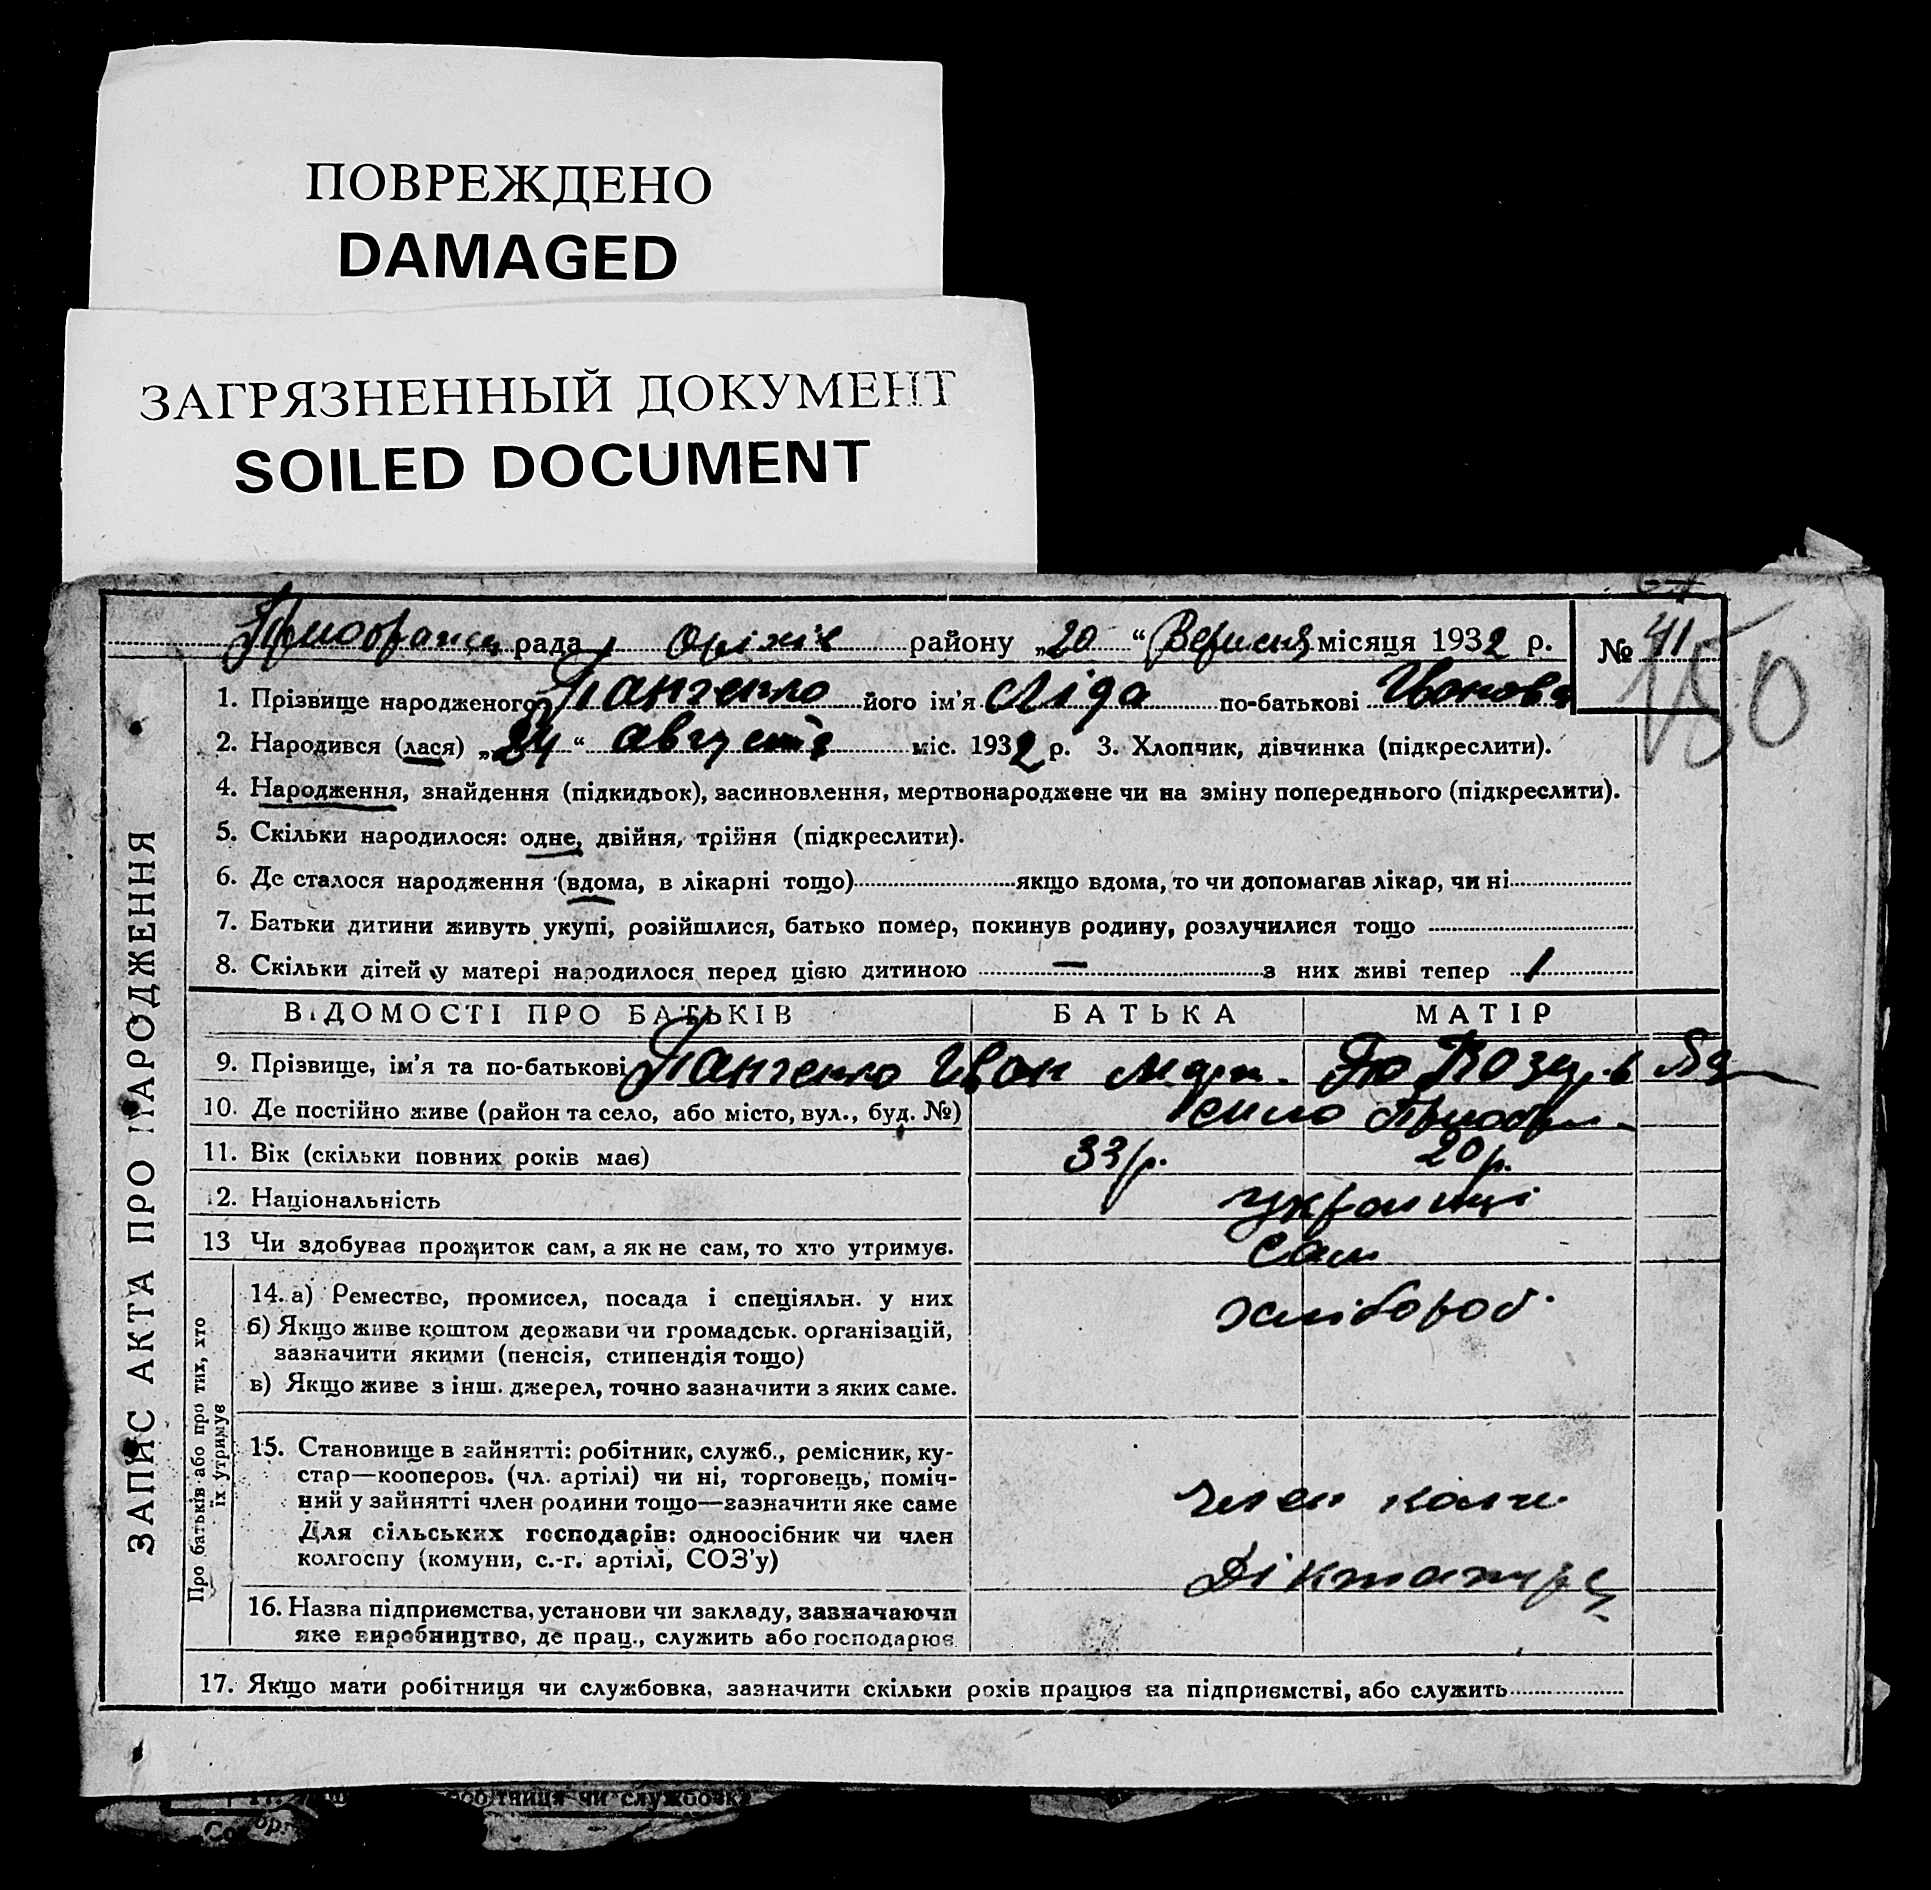 ПОВРЕЖДЕНО
DAMAGED
ЗАГРЯЗНЕННЫЙ ДОКУМЕНТ
SOILED DOCUMENT
рада району „20“ Вересня місяця 1932 р. № 41
150
1. Прізвище народженого Панченко його ім'я Ліда по-батькові Ивановн
2. Народився (лася) „24“ августа міс. 1932 р. 3. Хлопчик, дівчинка (підкреслити).
4. Народження, знайдення (підкидьок), засиновлення, мертвонароджене чи на зміну попереднього (підкреслити).
5. Скільки народилося: одне, двійня, трійня (підкреслити).
6. Де сталося народження (вдома, в лікарні тощо) якщо вдома, то чи допомагав лікар, чи ні
7. Батьки дитини живуть укупі, розійшлися, батько помер, покинув родину, розлучилися тощо
8. Скільки дітей у матері народилося перед цією дитиною — з них живі тепер 1
ЗАПИС АКТА ПРО НАРОДЖЕННЯ
ВІДОМОСТІ ПРО БАТЬКІВ БАТЬКА МАТІР
9. Прізвище, ім'я та по-батькові Панченко Иван
10. Де постійно живе (район та село, або місто, вул., буд. №)
11. Вік (скільки повних років має) 33 р. 20 р.
12. Національність українці
13 Чи здобував прожиток сам, а як не сам, то хто утримує. Сам
Про батьків або про тих, хто
їх утримує
14. а) Ремество, промисел, посада і спеціяльн. у них хлібороб.
б) Якщо живе коштом держави чи громадськ. організацій,
зазначити якими (пенсія, стипендія тощо)
в) Якщо живе з інш. джерел, точно зазначити з яких саме.
15. Становище в зайнятті: робітник, служб., ремісник, ку-
стар—кооперов. (чл. артілі) чи ні, торговець, поміч-
ний у зайнятті член родини тощо—зазначити яке саме член
Для сільських господарів: одноосібник чи член
колгоспу (комуни, с.-г. артілі, СОЗ'у)
Діктатура
16. Назва підприємства, установи чи закладу, зазначаючи
яке виробництво, де прац., служить або господарює
17. Якщо мати робітниця чи службовка, зазначити скільки років працює на підприємстві, або служить
робітниця чи службовка